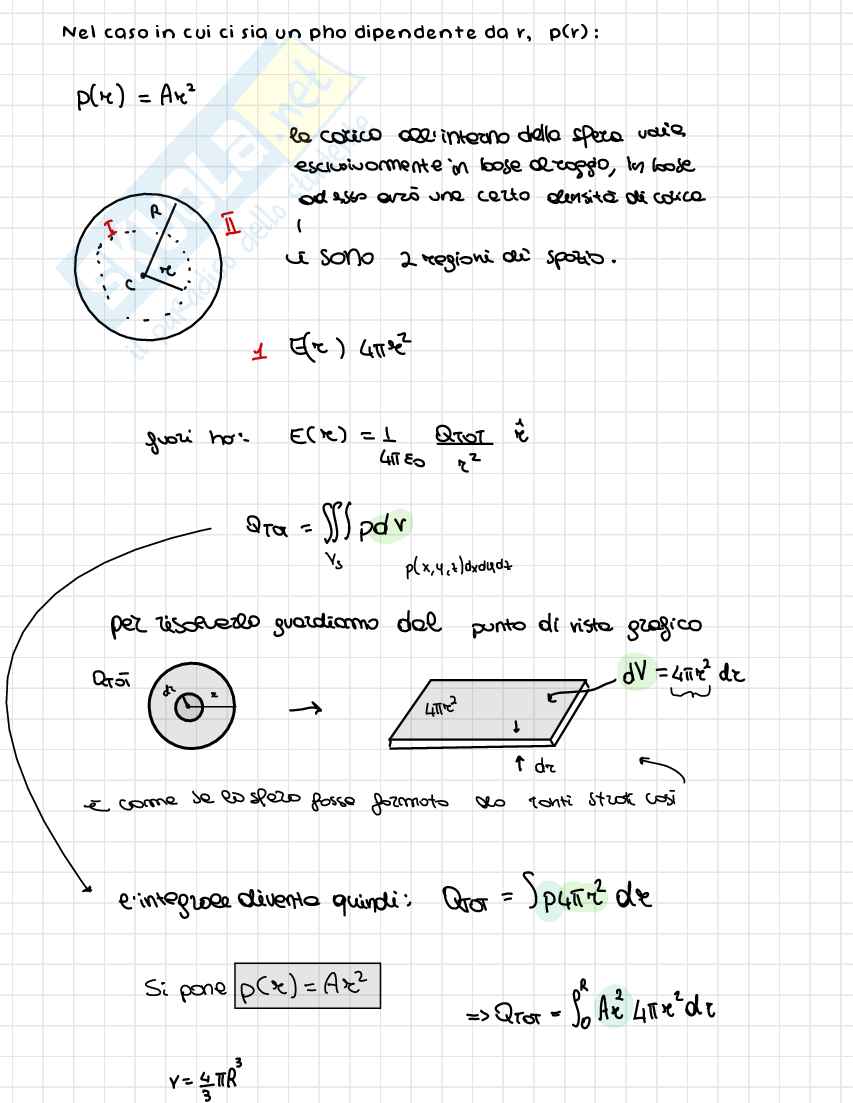 Nel caso in cui ci sia un pho dipendente da r, p(r):
p(r) = Ar²
la carica all'interno della sfera varia
esclusivamente in base al raggio, in base
ad esso avrò una certa densità di carica
R
I
II
r
C
ci sono 2 regioni di spazio.
1 E(r) 4πr²
fuori ho: E(r) = 1/4πε0 QTOT/r² r̂
QTOT = ∭Vs pdv
p(x,y,z)dxdydz
per risolverlo guardiamo dal punto di vista grafico
QTOT
dr
r
→
4πr²
dV = 4πr² dr
dr
è come se la sfera fosse formata da tanti strati così
l'integrale diventa quindi: QTOT = ∫p4πr² dr
Si pone p(r) = Ar²
=> QTOT = ∫0R Ar² 4πr² dr
V = 4/3 πR³
SKUOLA.net
il paradiso dello studente